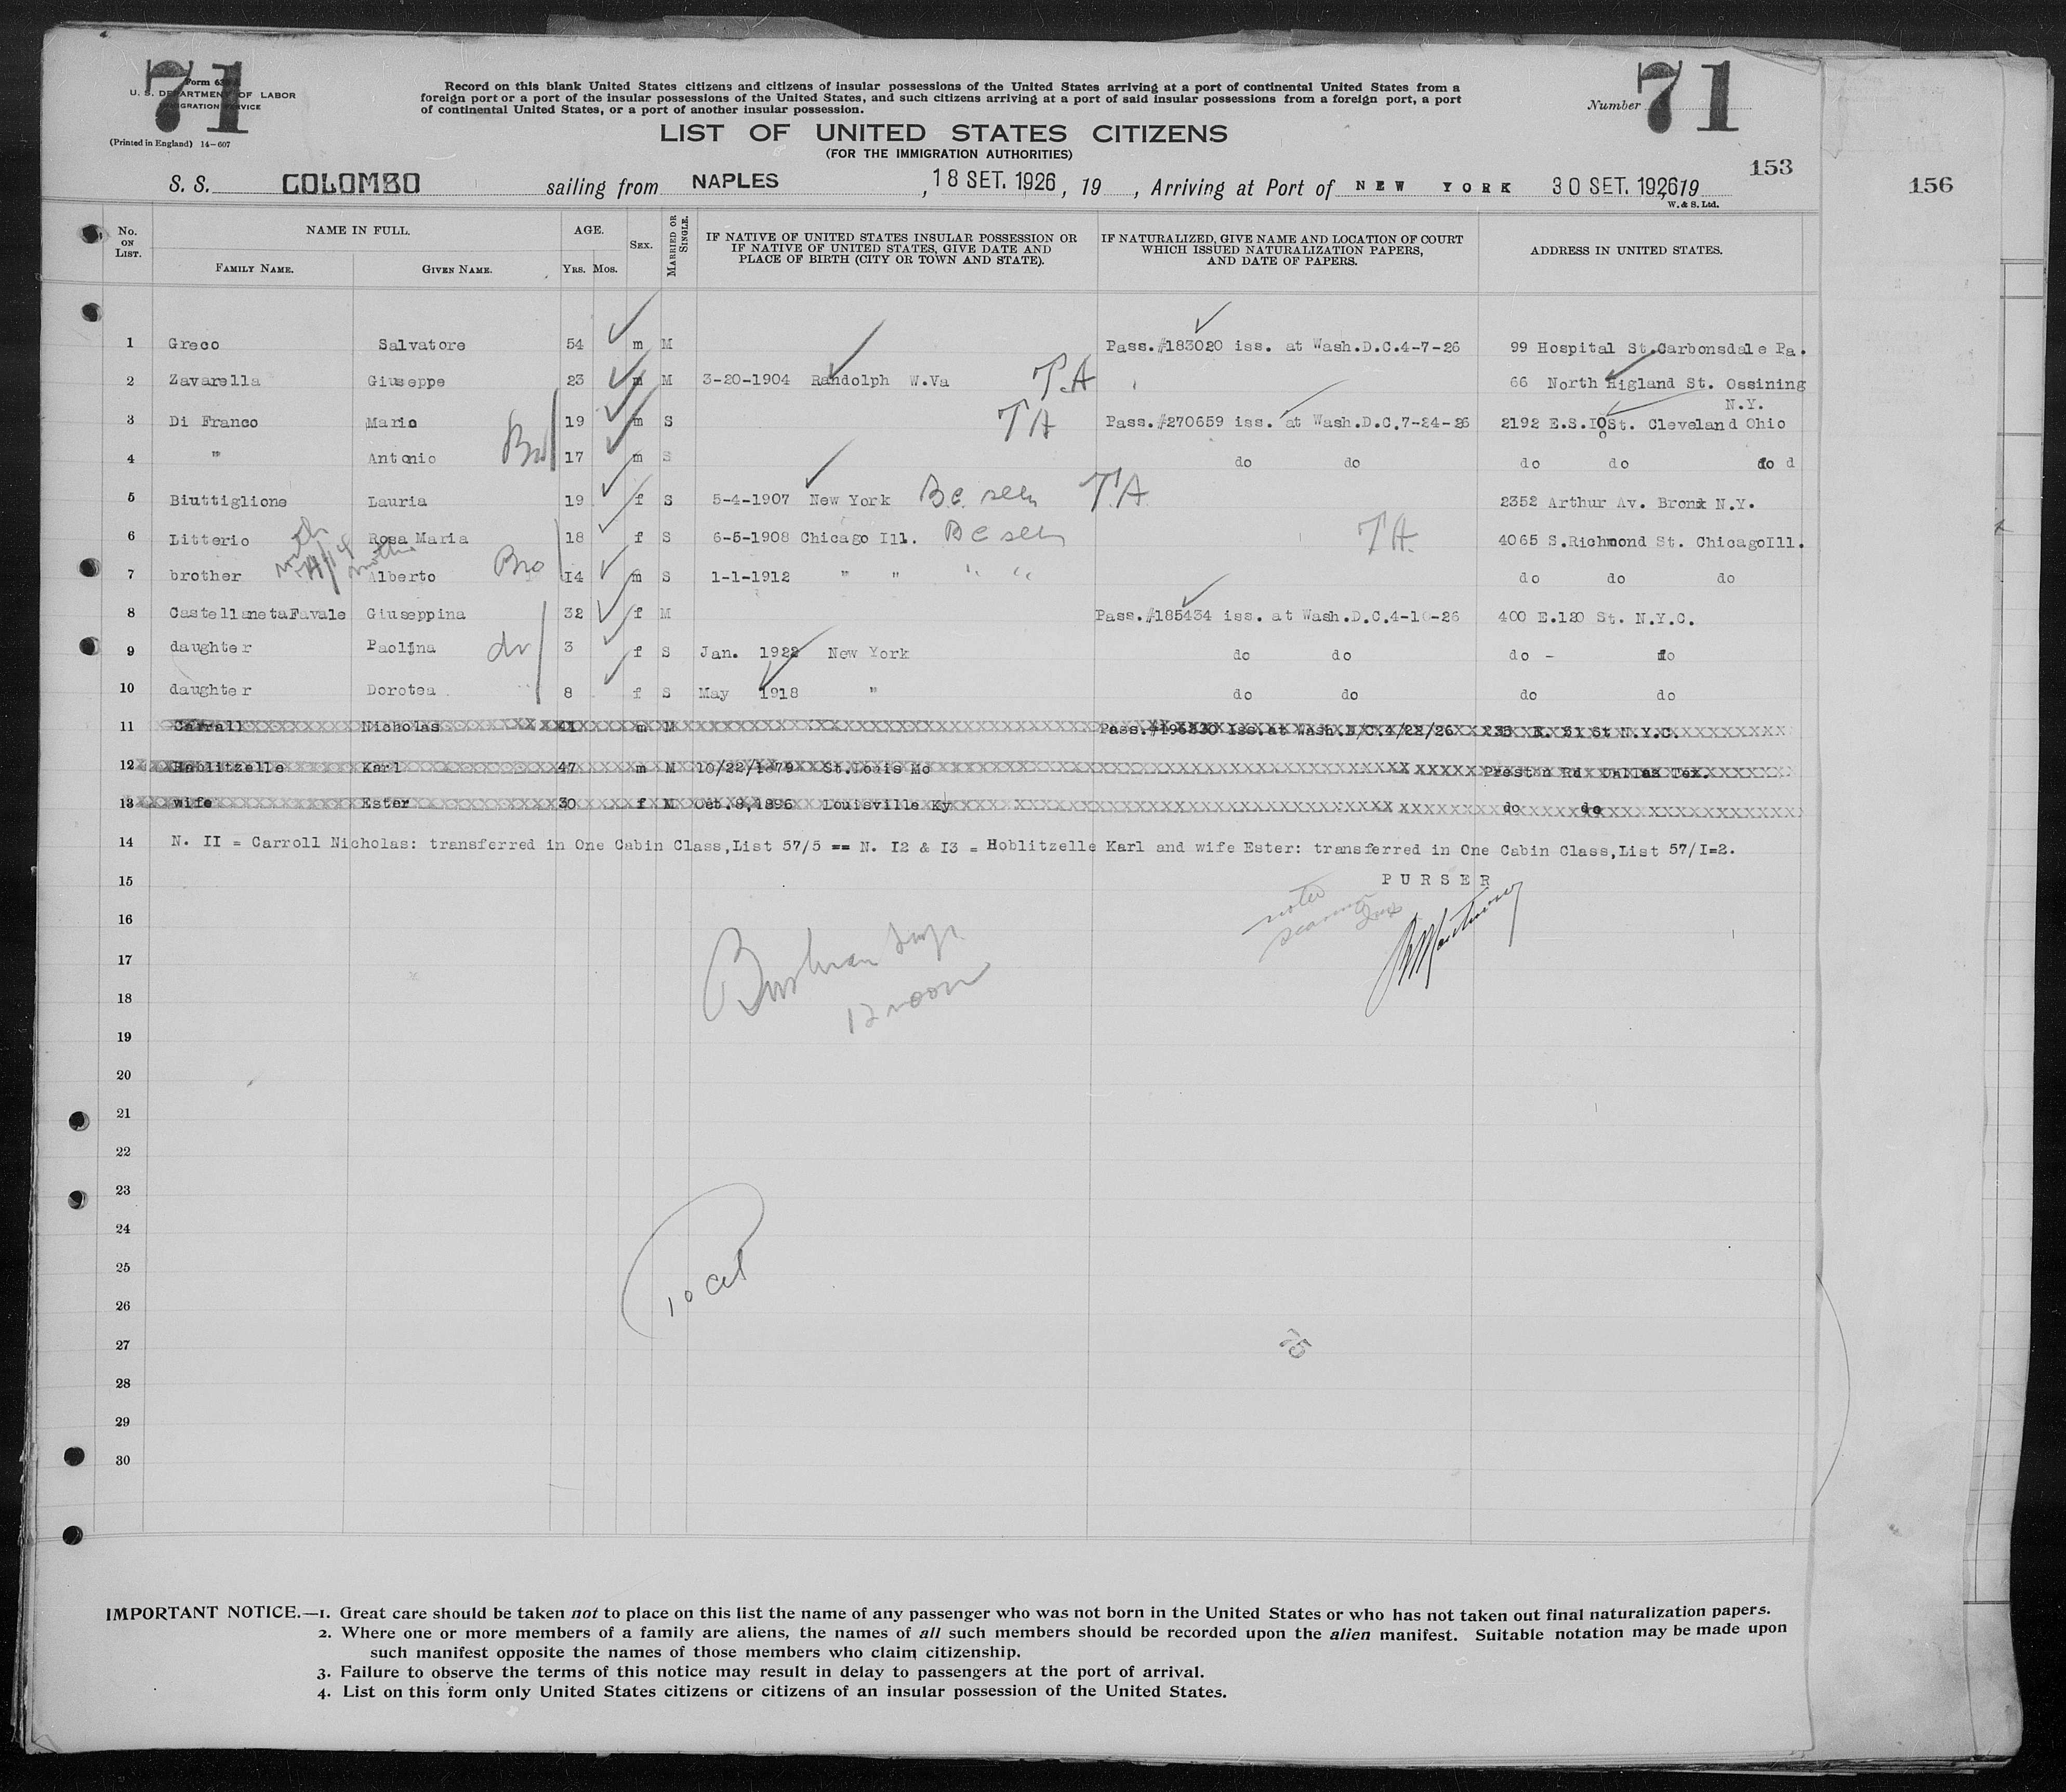 71
Form 630
U. S. DEPARTMENT OF LABOR
IMMIGRATION SERVICE
(Printed in England) 14-607
Record on this blank United States citizens and citizens of insular possessions of the United States arriving at a port of continental United States from a
foreign port or a port of the insular possessions of the United States, and such citizens arriving at a port of said insular possessions from a foreign port, a port
of continental United States, or a port of another insular possession.
LIST OF UNITED STATES CITIZENS
(FOR THE IMMIGRATION AUTHORITIES)
Number 71
153
156
S. S. COLOMBO sailing from NAPLES, 18 SET. 1926, 19 , Arriving at Port of NEW YORK 30 SET. 1926 19
W. & S. Ltd.
No. ON LIST. NAME IN FULL. AGE. SEX. MARRIED OR SINGLE. IF NATIVE OF UNITED STATES INSULAR POSSESSION OR IF NATIVE OF UNITED STATES, GIVE DATE AND PLACE OF BIRTH (CITY OR TOWN AND STATE). IF NATURALIZED, GIVE NAME AND LOCATION OF COURT WHICH ISSUED NATURALIZATION PAPERS, AND DATE OF PAPERS. ADDRESS IN UNITED STATES.
FAMILY NAME. GIVEN NAME. YRS. MOS.
1 Greco Salvatore 54 m M Pass.#183020 iss. at Wash.D.C.4-7-26 99 Hospital St.Carbonsdale Pa.
2 Zavarella Giuseppe 23 m M 3-20-1904 Randolph W.Va TA 66 North Higland St. Ossining
N.Y.
3 Di Franco Mario 19 m S TA Pass.#270659 iss. at Wash.D.C.7-24-26 2192 E.S.IOSt. Cleveland Ohio
4 " Antonio Bro 17 m S do do do do do d
5 Biuttiglione Lauria 19 f S 5-4-1907 New York Be seen TA 2352 Arthur Av. Bronx N.Y.
6 Litterio Rosa Maria 18 f S 6-5-1908 Chicago Ill. Be seen TA 4065 S.Richmond St. ChicagoIll.
7 brother Alberto Bro I4 m S 1-1-1912 " " " " do do do
8 CastellanetaFavale Giuseppina 32 f M Pass.#185434 iss. at Wash.D.C.4-10-26 400 E.120 St. N.Y.C.
9 daughter Paolina 3 f S Jan. 1922 New York do do do - do
10 daughter Dorotea 8 f S May 1918 " do do do do
11 Carrall Nicholas 41 m M Pass.#196330 iss.at Wash.D/C.4/22/26 235 E. 51 St N.Y.C.
12 Hoblitzelle Karl 47 m M 10/22/1879 St.Louis Mo Preston Rd Dallas Tex.
13 wife Ester 30 f M Oct.8,1896 Louisville Ky do do
14 N. II = Carroll Nicholas: transferred in One Cabin Class,List 57/5 == N. I2 & I3 = Hoblitzelle Karl and wife Ester: transferred in One Cabin Class,List 57/I=2.
15 PURSER
16
17
12 noon
18
19
20
21
22
23
24
25
26
27
75
28
29
30
IMPORTANT NOTICE.—1. Great care should be taken not to place on this list the name of any passenger who was not born in the United States or who has not taken out final naturalization papers.
2. Where one or more members of a family are aliens, the names of all such members should be recorded upon the alien manifest. Suitable notation may be made upon
such manifest opposite the names of those members who claim citizenship.
3. Failure to observe the terms of this notice may result in delay to passengers at the port of arrival.
4. List on this form only United States citizens or citizens of an insular possession of the United States.